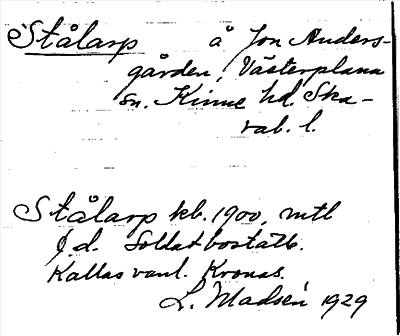 Stålarp å Jon Anders-
gården, Västerplana
sn. Kinne hd. Ska-
rab. l.
Stålarp kb. 1900, mtl
f.d. Soldatboställe.
Kallas vanl. Kronas.
L. Madsén 1929